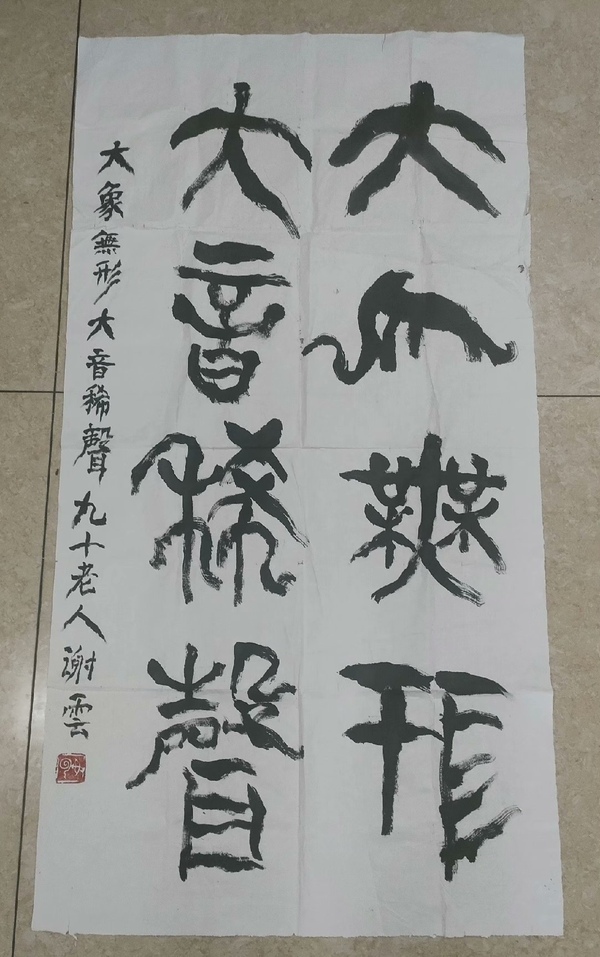 大象無形
大音稀聲
大象無形大音稀聲九十老人謝雲